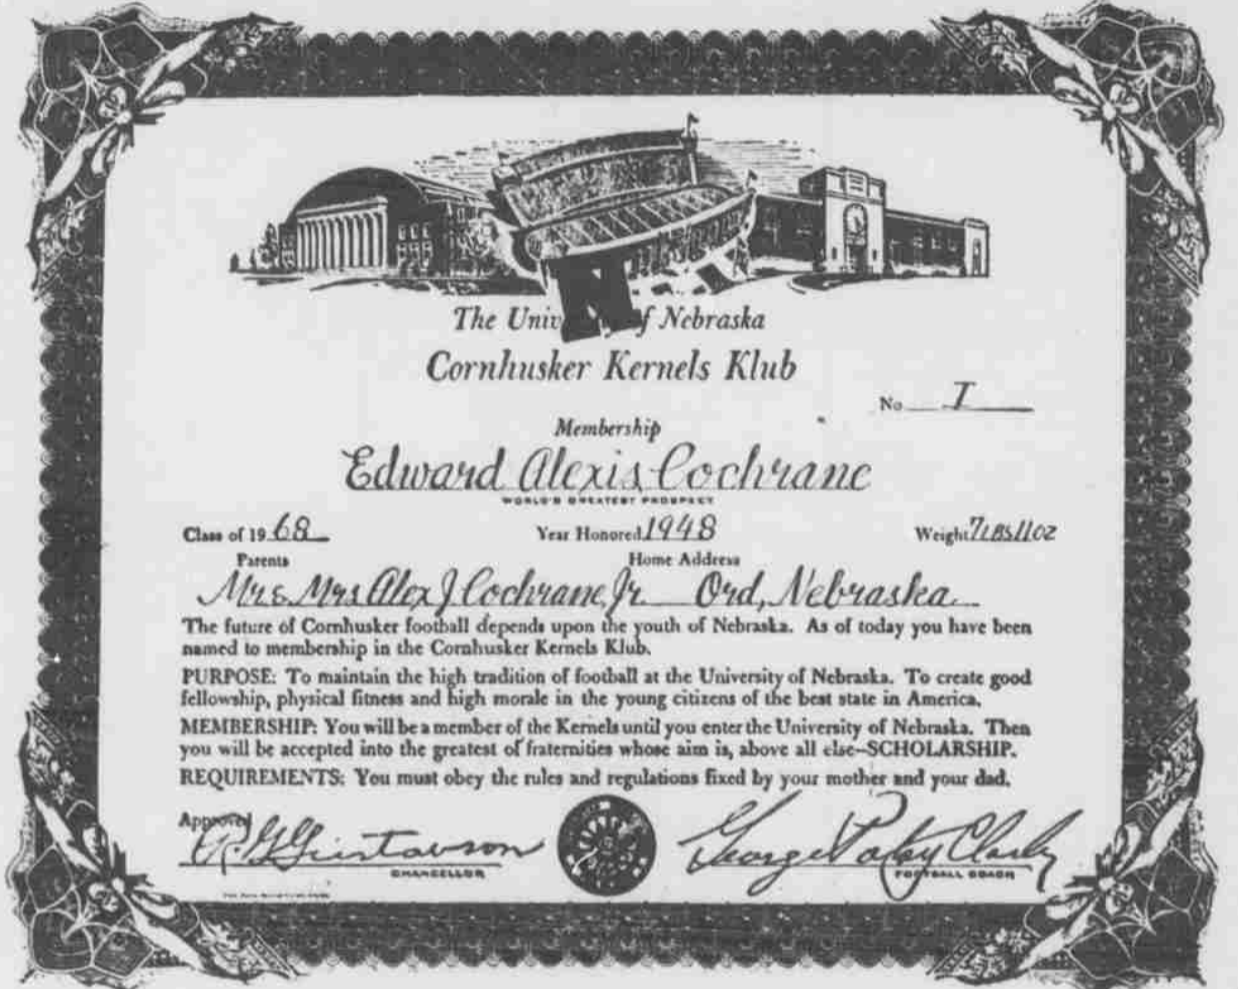 N
The Univ f Nebraska
Cornhusker Kernels Klub
No I
Membership
Edward Alexis Cochrane
WORLD'S GREATEST PROSPECT
Class of 1968 Year Honored 1948 Weight 7LBS 11OZ
Parents Home Address
Mr & Mrs Alex J Cochrane, Jr. Ord, Nebraska
The future of Cornhusker football depends upon the youth of Nebraska. As of today you have been
named to membership in the Cornhusker Kernels Klub.
PURPOSE: To maintain the high tradition of football at the University of Nebraska. To create good
fellowship, physical fitness and high morale in the young citizens of the best state in America.
MEMBERSHIP: You will be a member of the Kernels until you enter the University of Nebraska. Then
you will be accepted into the greatest of fraternities whose aim is, above all else--SCHOLARSHIP.
REQUIREMENTS: You must obey the rules and regulations fixed by your mother and your dad.
Approved
R G Gustavson George Potsy Clark
CHANCELLOR FOOTBALL COACH